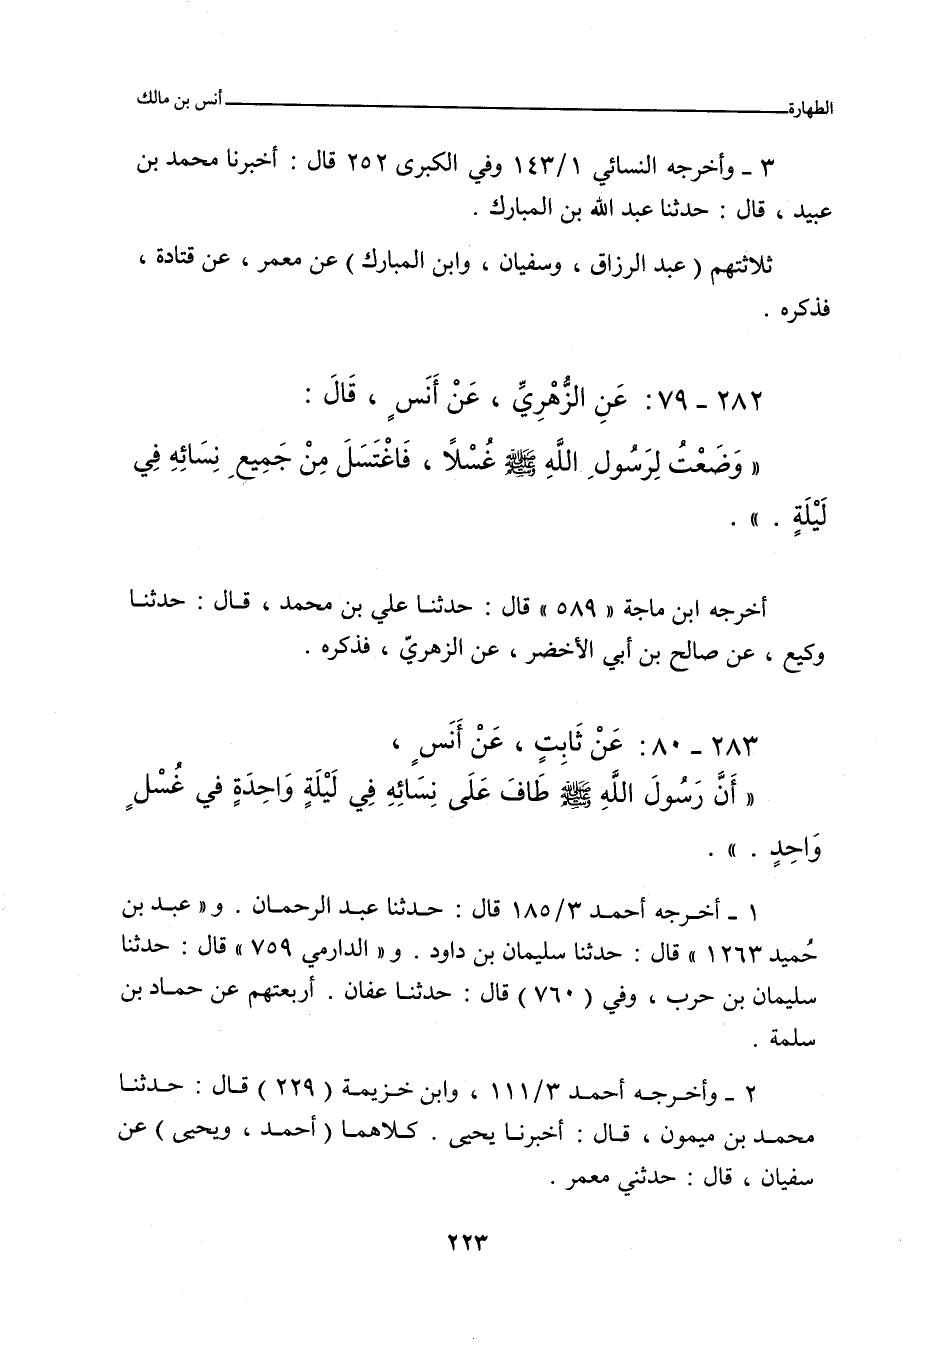 الطهارة ــــــــ أنس بن مالك
٣ ـ وأخرجه النسائي ١٤٣/١ وفي الكبرى ٢٥٢ قال : أخبرنا محمد بن
عبيد ، قال : حدثنا عبد الله بن المبارك .
ثلاثتهم ( عبد الرزاق ، وسفيان ، وابن المبارك ) عن معمر ، عن قتادة ،
فذكره .
٢٨٢ ـ ٧٩: عَنِ الزُّهْرِيِّ ، عَنْ أَنَسٍ ، قَالَ :
« وَضَعْتُ لِرَسُولِ اللَّهِ ﷺ غُسْلاً ، فَاغْتَسَلَ مِنْ جَمِيعِ نِسَائِهِ فِي
لَيْلَةٍ . » .
أخرجه ابن ماجة « ٥٨٩ » قال : حدثنا علي بن محمد ، قال : حدثنا
وكيع ، عن صالح بن أبي الأخضر ، عن الزهريّ ، فذكره .
٢٨٣ ـ ٨٠: عَنْ ثَابِتٍ ، عَنْ أَنَسٍ ،
« أَنَّ رَسُولَ اللَّهِ ﷺ طَافَ عَلَى نِسَائِهِ فِي لَيْلَةٍ وَاحِدَةٍ في غُسْلٍ
وَاحِدٍ . » .
١ ـ أخرجه أحمد ١٨٥/٣ قال : حدثنا عبد الرحمان . و« عبد بن
حُميد ١٢٦٣ » قال : حدثنا سليمان بن داود . و « الدارمي ٧٥٩ » قال : حدثنا
سليمان بن حرب ، وفي ( ٧٦٠ ) قال : حدثنا عفان . أربعتهم عن حماد بن
سلمة .
٢ ـ وأخرجه أحمد ١١١/٣ ، وابن خزيمة ( ٢٢٩ ) قال : حدثنا
محمد بن ميمون ، قال : أخبرنا يحيى . كلاهما ( أحمد ، ويحيى ) عن
سفيان ، قال : حدثني معمر .
٢٢٣